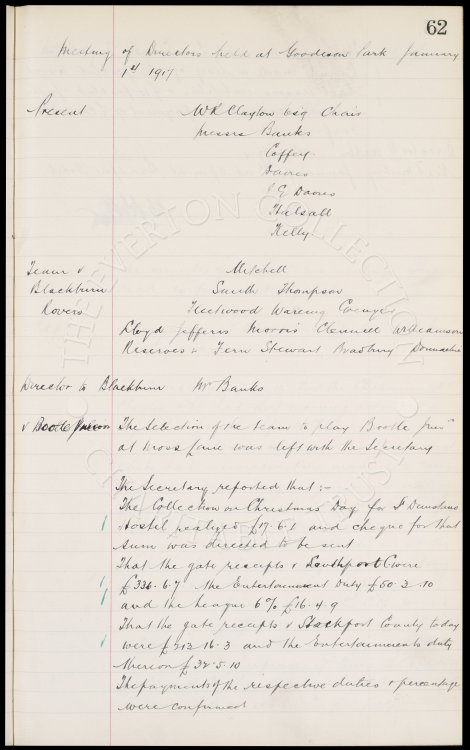 62
Meeting of Directors held at Goodison Park January
1st 1917
Present W R Clayton Esq Chair
Messrs Banks
Coffey
Davies
J E Davies
Halsall
Kelly
Team v Mitchell
Blackburn Smith Thompson
Rovers Fleetwood Wareing Grenyer
Lloyd Jefferis Morris Clennell Williamson
Reserves :- Fern Stewart Bradbury Donnachie
Director to Blackburn Mr Banks
v Bootle Juniors The Selection of the team to play Bootle Jun
at Cross Lane was left with the Secretary
The Secretary reported that :-
The Collection on Christmas Day for St Dunstans
Hostel realized £17.6.1 and cheque for that
sum was directed to be sent
That the gate receipts v Southport C were
£336.6.7 the Entertainment Duty £50.2.10
and the League 6% £16.4.9
That the gate receipts v Stockport County today
were £212.16.3 and the Entertainments duty
thereon £32.5.10
The payments of the respective duties & percentage
were confirmed
THE EVERTON COLLECTION
CHARITABLE TRUST